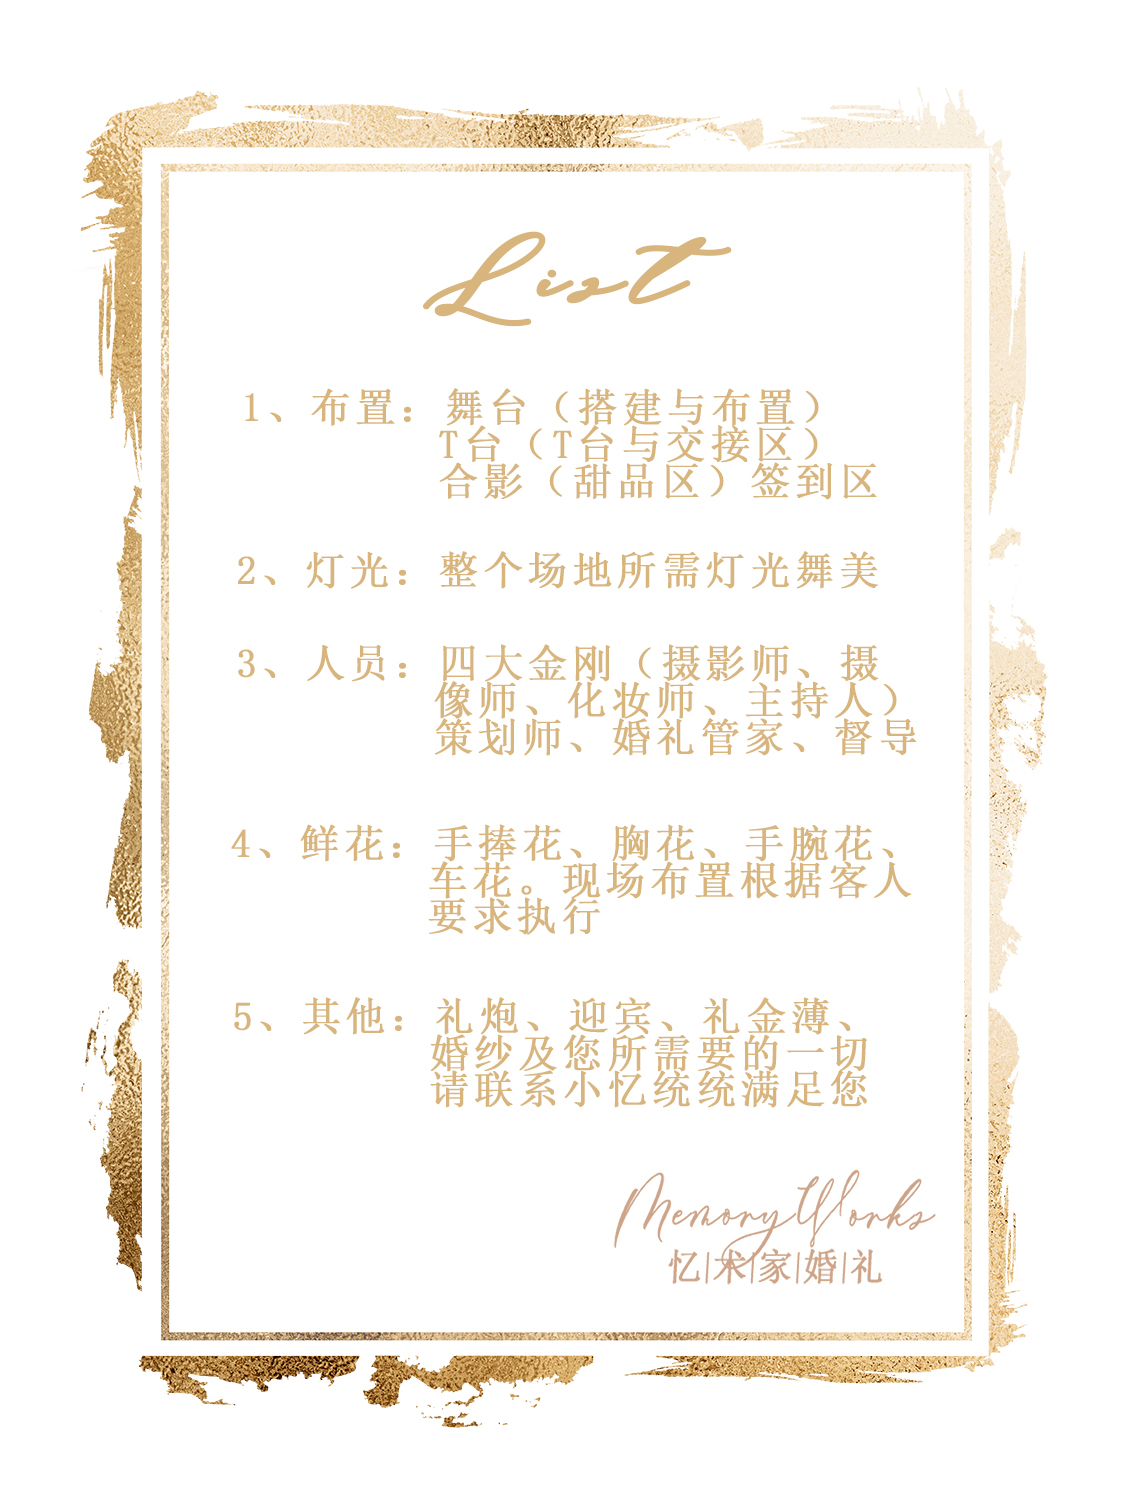 List
1、布置：舞台（搭建与布置）
T台（T台与交接区）
合影（甜品区）签到区
2、灯光：整个场地所需灯光舞美
3、人员：四大金刚（摄影师、摄
像师、化妆师、主持人）
策划师、婚礼管家、督导
4、鲜花：手捧花、胸花、手腕花、
车花。现场布置根据客人
要求执行
5、其他：礼炮、迎宾、礼金薄、
婚纱及您所需要的一切
请联系小忆统统满足您
MemoryWorks
忆|术|家|婚|礼